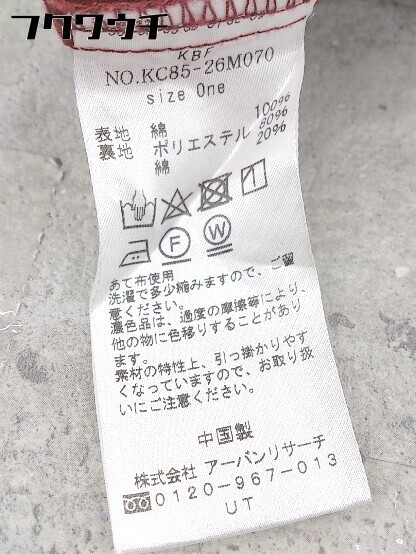 フクウロウチ
KBF
NO.KC85-26M070
size One
表地 綿 100%
裏地 ポリエステル 80%
綿 20%
F
W
あて布使用
洗濯で多少縮みますので、ご留
意ください。
濃色品は、過度の摩擦等により、
他の物に色移りすることがあり
ます。
素材の特性上、引っ掛かりやす
くなっていますので、お取り扱
いにご注意ください。
中国製
株式会社 アーバンリサーチ
0120-967-013
UT